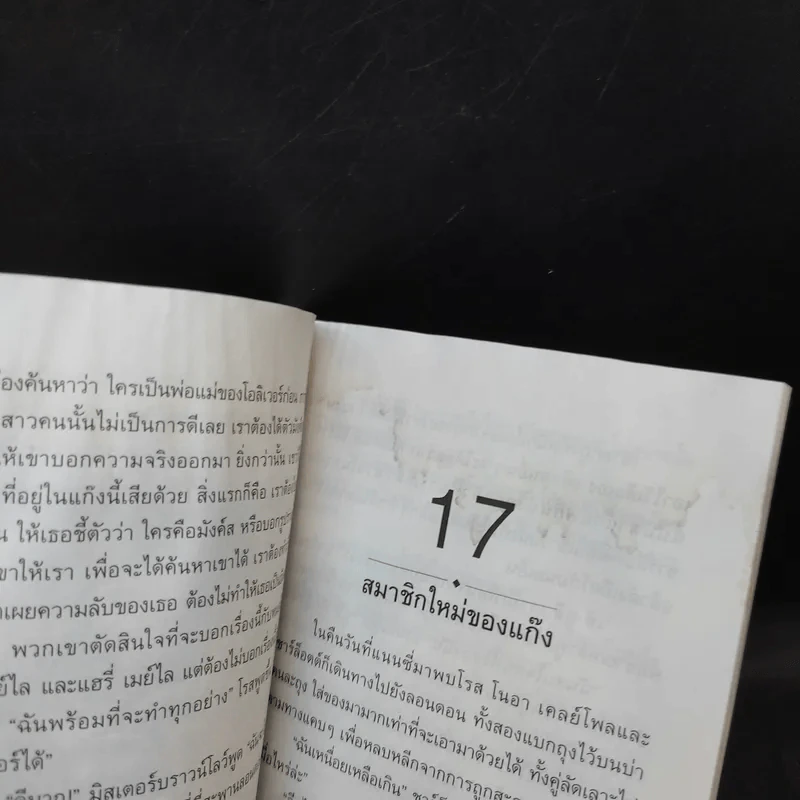 องค้นหาว่า ใครเป็นพ่อแม่ของโอลิเวอร์ก่อน
สาวคนนั้นไม่เป็นการดีเลย เราต้องได้ตัว
ให้เขาบอกความจริงออกมา ยิ่งกว่านั้น
ที่อยู่ในแก๊งนี้เสียด้วย สิ่งแรกก็คือ เราต้อง
ให้เธอชี้ตัวว่า ใครคือมังค์ส หรือบอกรูป
ขาให้เรา เพื่อจะได้ค้นหาเขาได้ เราต้อง
เผยความลับของเธอ ต้องไม่ทำให้เธอเป็น
พวกเขาตัดสินใจที่จะบอกเรื่องนี้กับ
ย์ไล และแฮรี่ เมย์ไล แต่ต้องไม่บอกเรื่อง
“ฉันพร้อมที่จะทำทุกอย่าง” โรสพูด
อร์ได้”
มิสเตอร์บราวน์โลว์พูด
ที่สะพานลอน
17
สมาชิกใหม่ของแก๊ง
ในคืนวันที่แนนซี่มาพบโรส โนอา เคลย์โพลและ
ชาร์ล็อตต์ก็เดินทางไปยังลอนดอน ทั้งสองแบกถุงไว้บนบ่า
คนละถุง ใส่ของมามากเท่าที่จะเอามาด้วยได้ ทั้งคู่ลัดเลาะไป
ตามทางแคบๆ เพื่อหลบหลีกจากการถูก
“ฉันเหนื่อยเหลือเกิน”
ื่อไหร่ล่ะ”